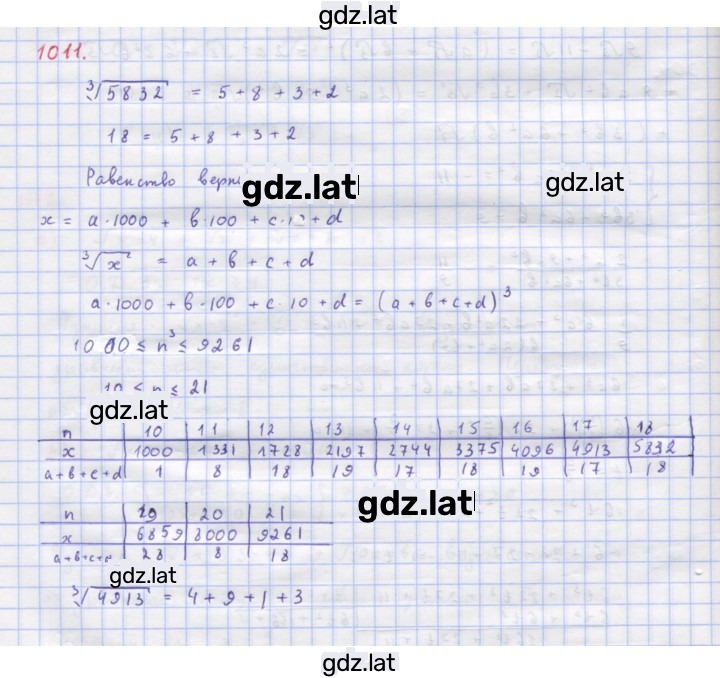 gdz.lat
1011.
∛5832 = 5+8+3+2
18 = 5+8+3+2
Равенство
gdz.lat
gdz.lat
x = a·1000 + b·100 + c·10 + d
∛x = a+b+c+d
a·1000 + b·100 + c·10 + d = (a+b+c+d)³
1000 ≤ n³ ≤ 9261
10 ≤ n ≤ 21
gdz.lat
n 10 11 12 13 14 15 16 17 18
x 1000 1331 1728 2197 2744 3375 4096 4913 5832
a+b+c+d 1 8 18 19 17 18 19 17 18
gdz.lat
n 19 20 21
x 6859 8000 9261
a+b+c+d 28 8 18
gdz.lat
∛4913 = 4+9+1+3
gdz.lat